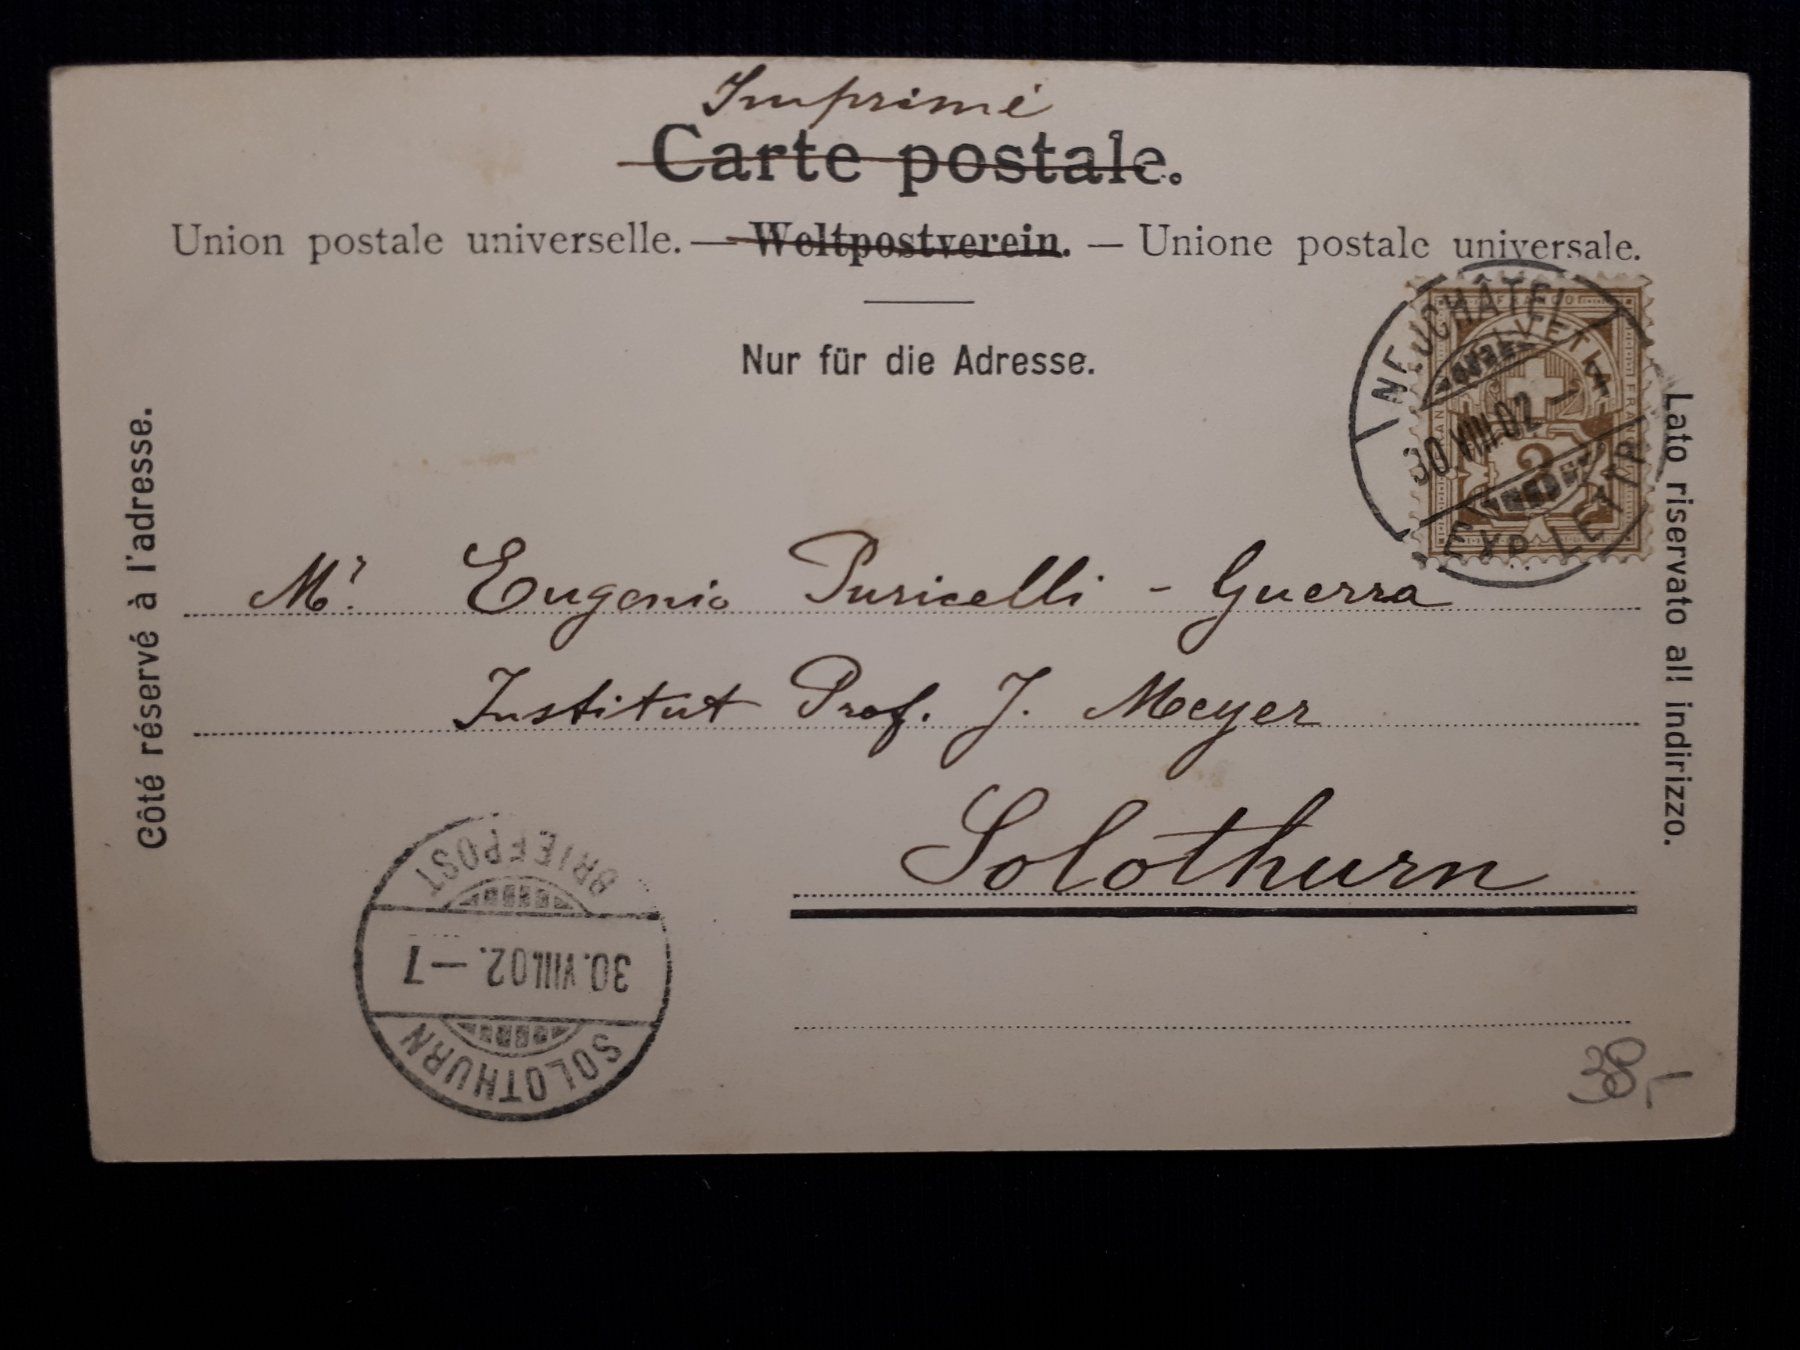 Imprimé
Carte postale.
Union postale universelle. — Weltpostverein. — Unione postale universale.
Nur für die Adresse.
Côté réservé à l'adresse.
Lato riservato all indirizzo.
FRANCO
HELVETIA
2
NEUCHÂTEL
30.VIII.02
EXP. LETTR.
Mr. Eugenio Puricelli - Guerra
Institut Prof. J. Meyer
Solothurn
SOLOTHURN
30.VIII.02.-7
BRIEFPOST
38,-